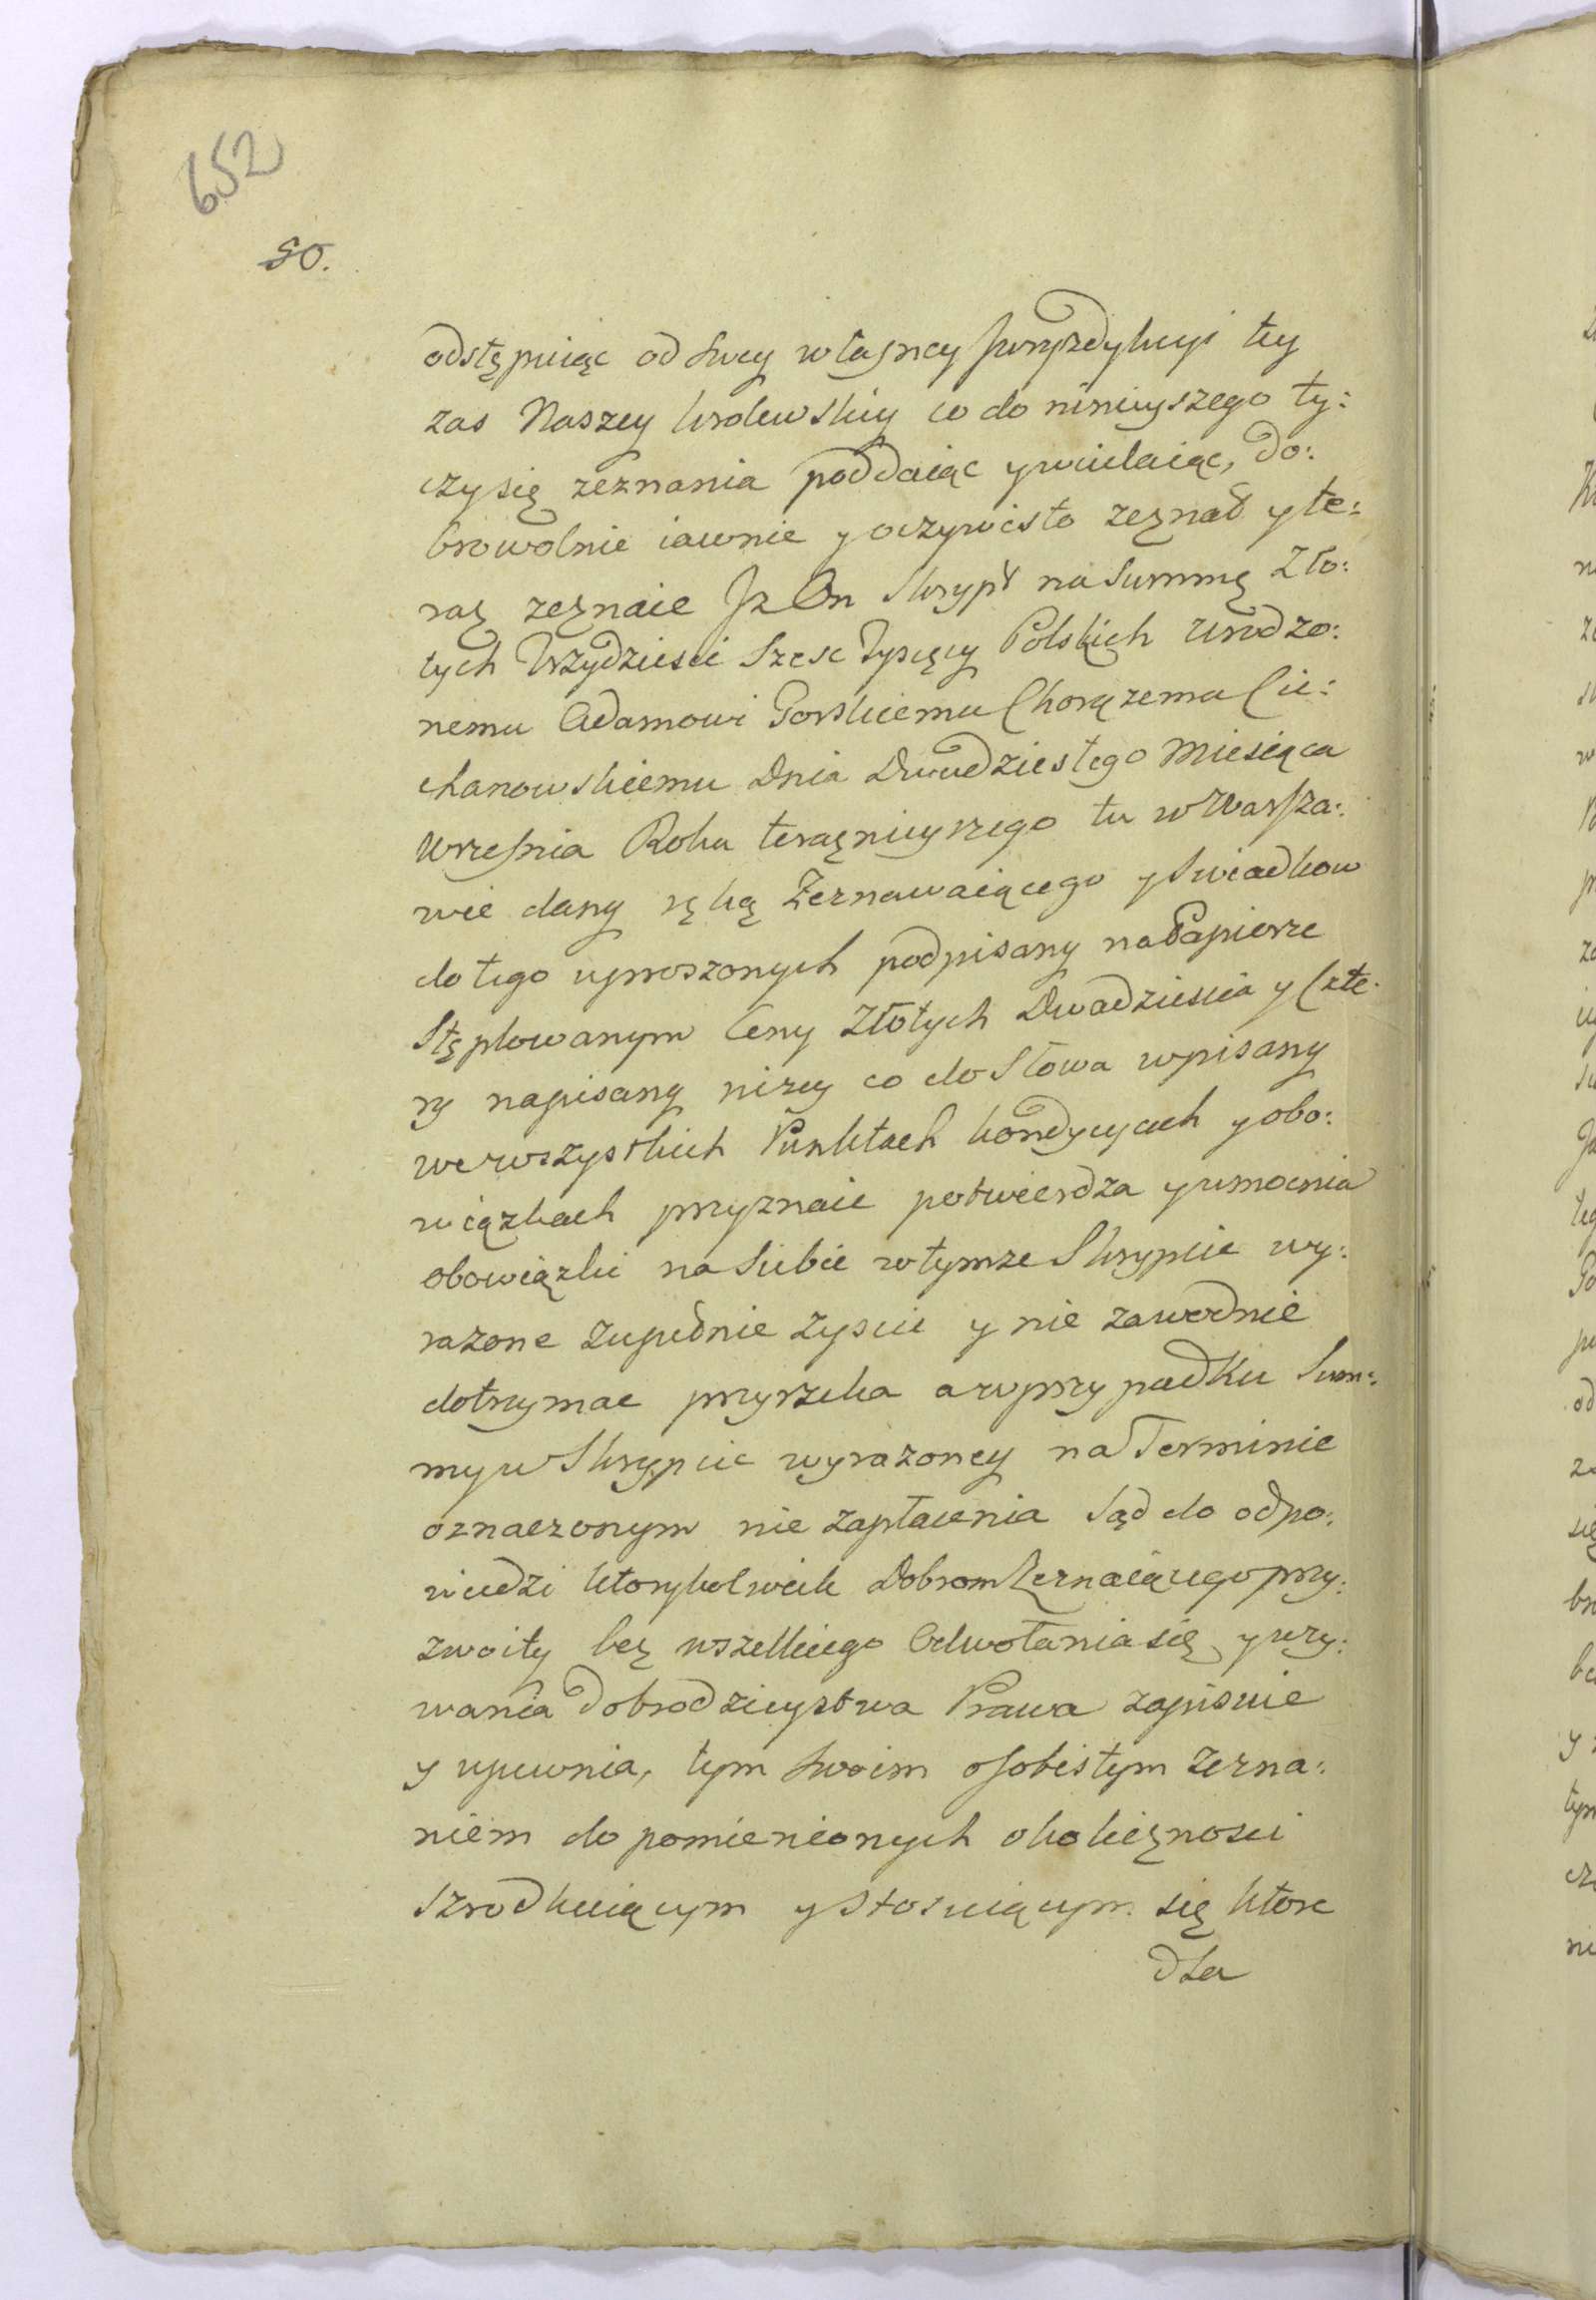 652
50.
odstępuiąc od swey własney Juryzdykcyi tey
zas Naszey krolewskiey co do ninieyszego ty:
czy się zeznania poddaiąc y wcielaiąc, do:
browolnie iawnie y oczywisto zeznał y te:
raz zeznaie Jż On Skrypt na Summę Zło:
tych Trzydziesci Szesc Tysięcy Polskich Urodzo:
nemu Adamowi Gorskiemu Chorązemu Cie:
chanowskiemu Dnia Dwudziestego Miesiąca
Wrzesnia Roku teraznieyszego tu w Warsza:
wie dany ręką Zeznawaiącego y Swiadkow
do tego uproszonych podpisany na Papierze
Stęplowanym Ceny Złotych Dwadziescia y Czte:
ry napisany nizey co do Słowa wpisany
we wszystkich Punktach kondycyach y obo:
wiązkach przyznaie potwierdza y umocnia
obowiązki na Siebie w tymze Skrypcie wy:
razone zupełnie zyscic y nie zawodnie
dotrzymac przyrzeka a w przypadku Sum:
my w Skrypcie wyrazoney na Terminie
oznaczonym nie zapłacenia Sąd do odpo:
wiedzi ktorykolwiek Dobrom Zeznaiącego przy:
zwoity bez wszelkiego Odwołania się y uzy:
wania Dobrodzieystwa Prawa zapisuie
y upewnia, tym swoim osobistym Zezna:
niem do pomienionych okolicznosci
szrodkuiącym y Stosuiącym się ktore
dla